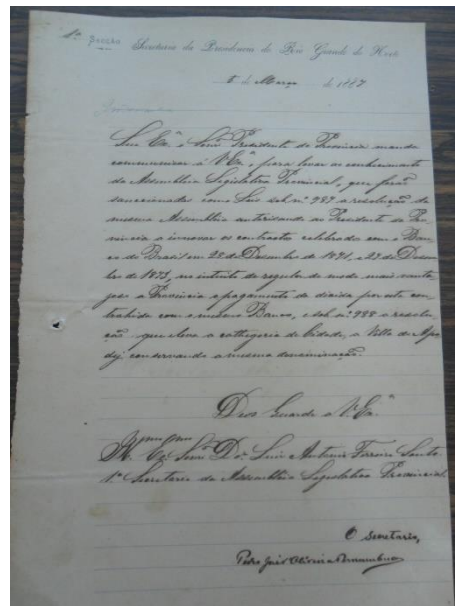 1ª Secção Secretaria da Presidencia do Rio Grande do Norte
5 de Março de 1887
Sua Exª o Senr Presidente da Provincia manda
communicar á V Exª, para levar ao conhecimento
da Assembléa Legislativa Provincial, que forão
sanccionadas como Leis sob nº 987 a resolução da
mesma Assembléa autorisando ao Presidente da Pro
vincia a innovar os contractos celebrado com o Ban
co do Brasil em 28 de Dezembro de e 23 de Dezem
bro de no intuito de regular de modo mais vanta
joso a Provincia o pagamento da divida por esta con
trahida com o mesmo Banco, e sob nº 988 a resolu
ção que eleva a cathegoria de Cidade, a Villa do Apo
dy, conservando a mesma denominação.
Deos Guarde a V. Exª
Illmº Exmº Senr Dor Luis Antonio Ferreira Souto
1º Secretario da Assembléa Legislativa Provincial
O Secretario,
Pedro José Oliveira Pernambuco